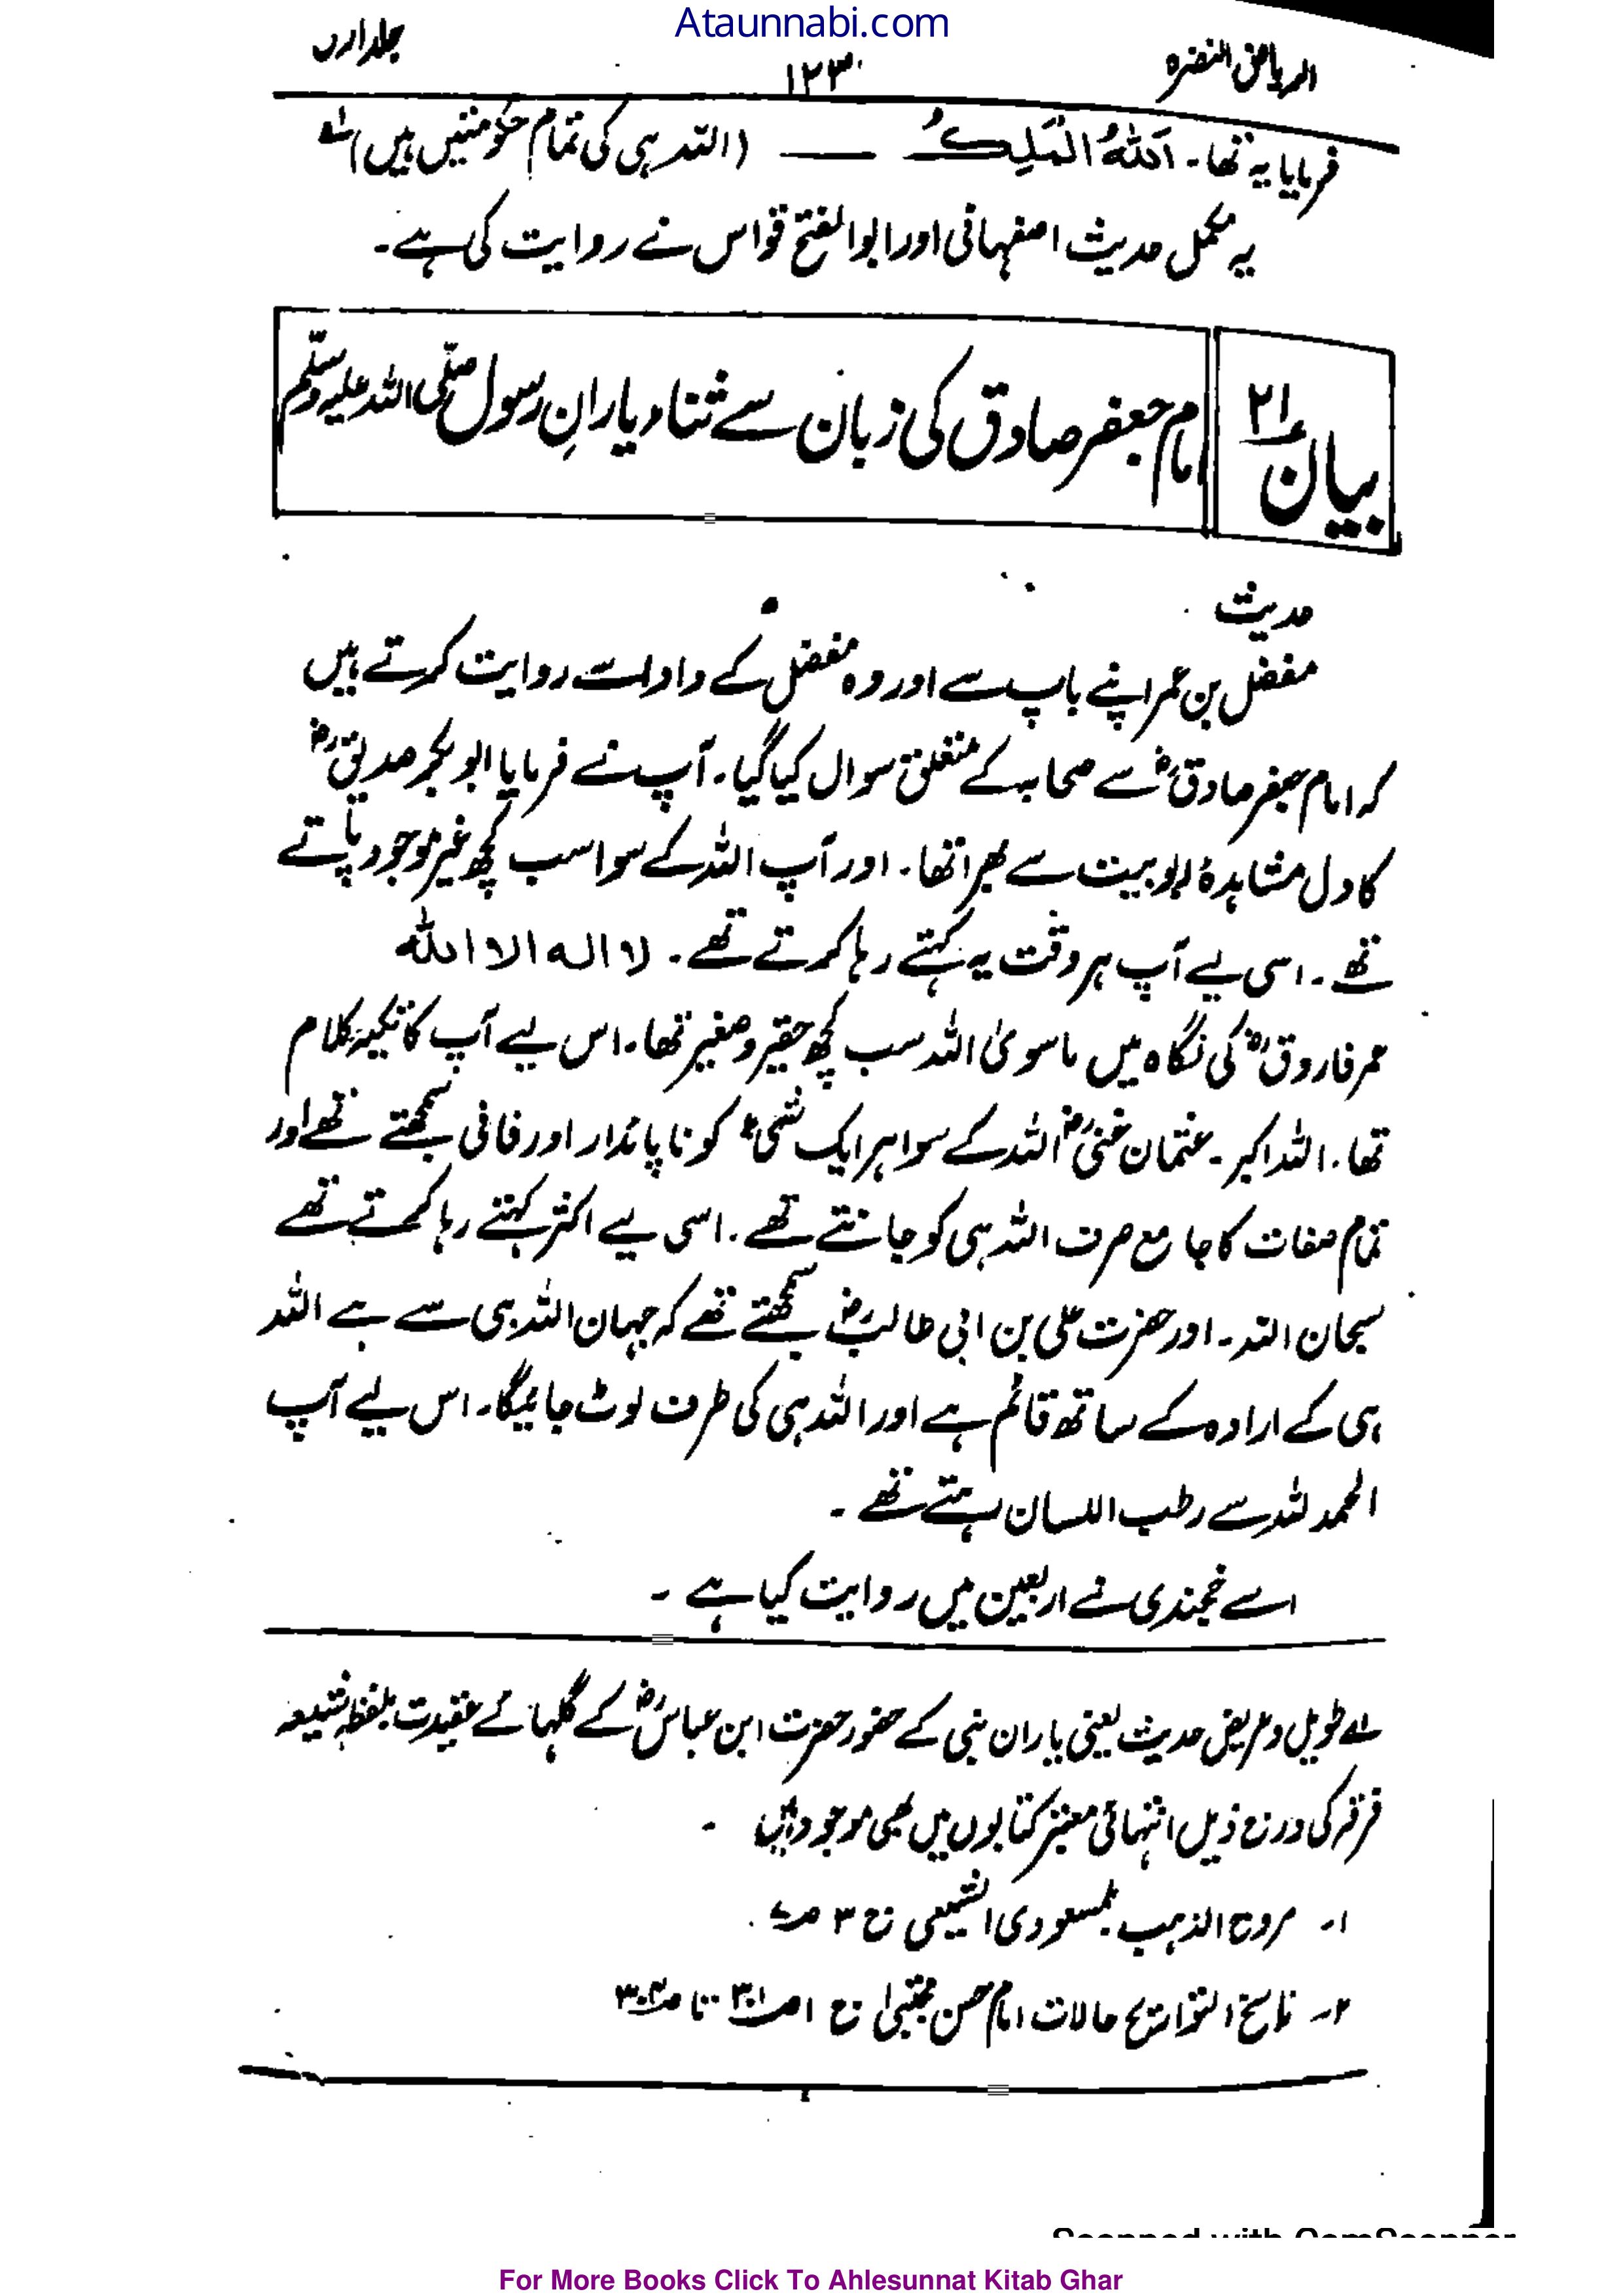 Ataunnabi.com
الریاض النضرہ ۱۲۳ جلد اول
فرمایا یہ تھا۔ اَللّٰهُ الْمَلِكُ —— (اللہ ہی کی تمام حکومتیں ہیں) لے
یہ مکمل حدیث اصفہانی اور ابوالفتح قواس نے روایت کی ہے۔
بیان ۲۱ امام جعفر صادق کی زبان سے ثناء یارانِ رسول صلّی اللہ علیہ وسلّم
حدیث
مفضل بن عمر اپنے باپ سے اور وہ مفضل کے دادا سے روایت کرتے ہیں
کہ امام جعفر صادقؓ سے صحابہ کے متعلق سوال کیا گیا۔ آپ نے فرمایا ابو بکر صدیقؓ
کا دل مشاہدۂ ربوبیت سے بھرا تھا۔ اور آپ اللہ کے سوا سب کچھ غیر موجود پاتے
تھے۔ اسی لیے آپ ہر وقت یہ کہتے رہا کرتے تھے۔ لا الہ الا اللّٰہ
عمر فاروقؓ کی نگاہ میں ماسویٰ اللہ سب کچھ حقیر و صغیر تھا۔ اس لیے آپ کا تکیہ کلام
تھا۔ اللہ اکبر۔ عثمان غنیؓ اللہ کے سوا ہر ایک شیٔ کو ناپائدار اور فانی سمجھتے تھے اور
تمام صفات کا جامع صرف اللہ ہی کو جانتے تھے۔ اسی لیے اکثر کہتے رہا کرتے تھے
سبحان اللہ۔ اور حضرت علی بن ابی طالبؓ سمجھتے تھے کہ جہان اللہ ہی سے ہے اللہ
ہی کے ارادہ کے ساتھ قائم ہے اور اللہ ہی کی طرف لوٹ جائیگا۔ اس لیے آپ
الحمد للہ سے رطب اللسان رہتے تھے۔
اسے خجندی نے اربعین میں روایت کیا ہے۔
لے طویل و عریض حدیث یعنی یاران نبی کے حضور حضرت ابن عباسؓ کے گلہائے عقیدت بلفظہٖ شیعہ
فرقہ کی درج ذیل انتہائی معتبر کتابوں میں بھی موجود ہیں۔
۱۔ مروج الذہب للمسعودی الشیعی ج ۳
۲۔ ناسخ التواریخ حالات امام حسن مجتبیٰ ج ۱ ص۳۰۱ تا ص۳۰۲
Scanned with CamScanner
For More Books Click To Ahlesunnat Kitab Ghar